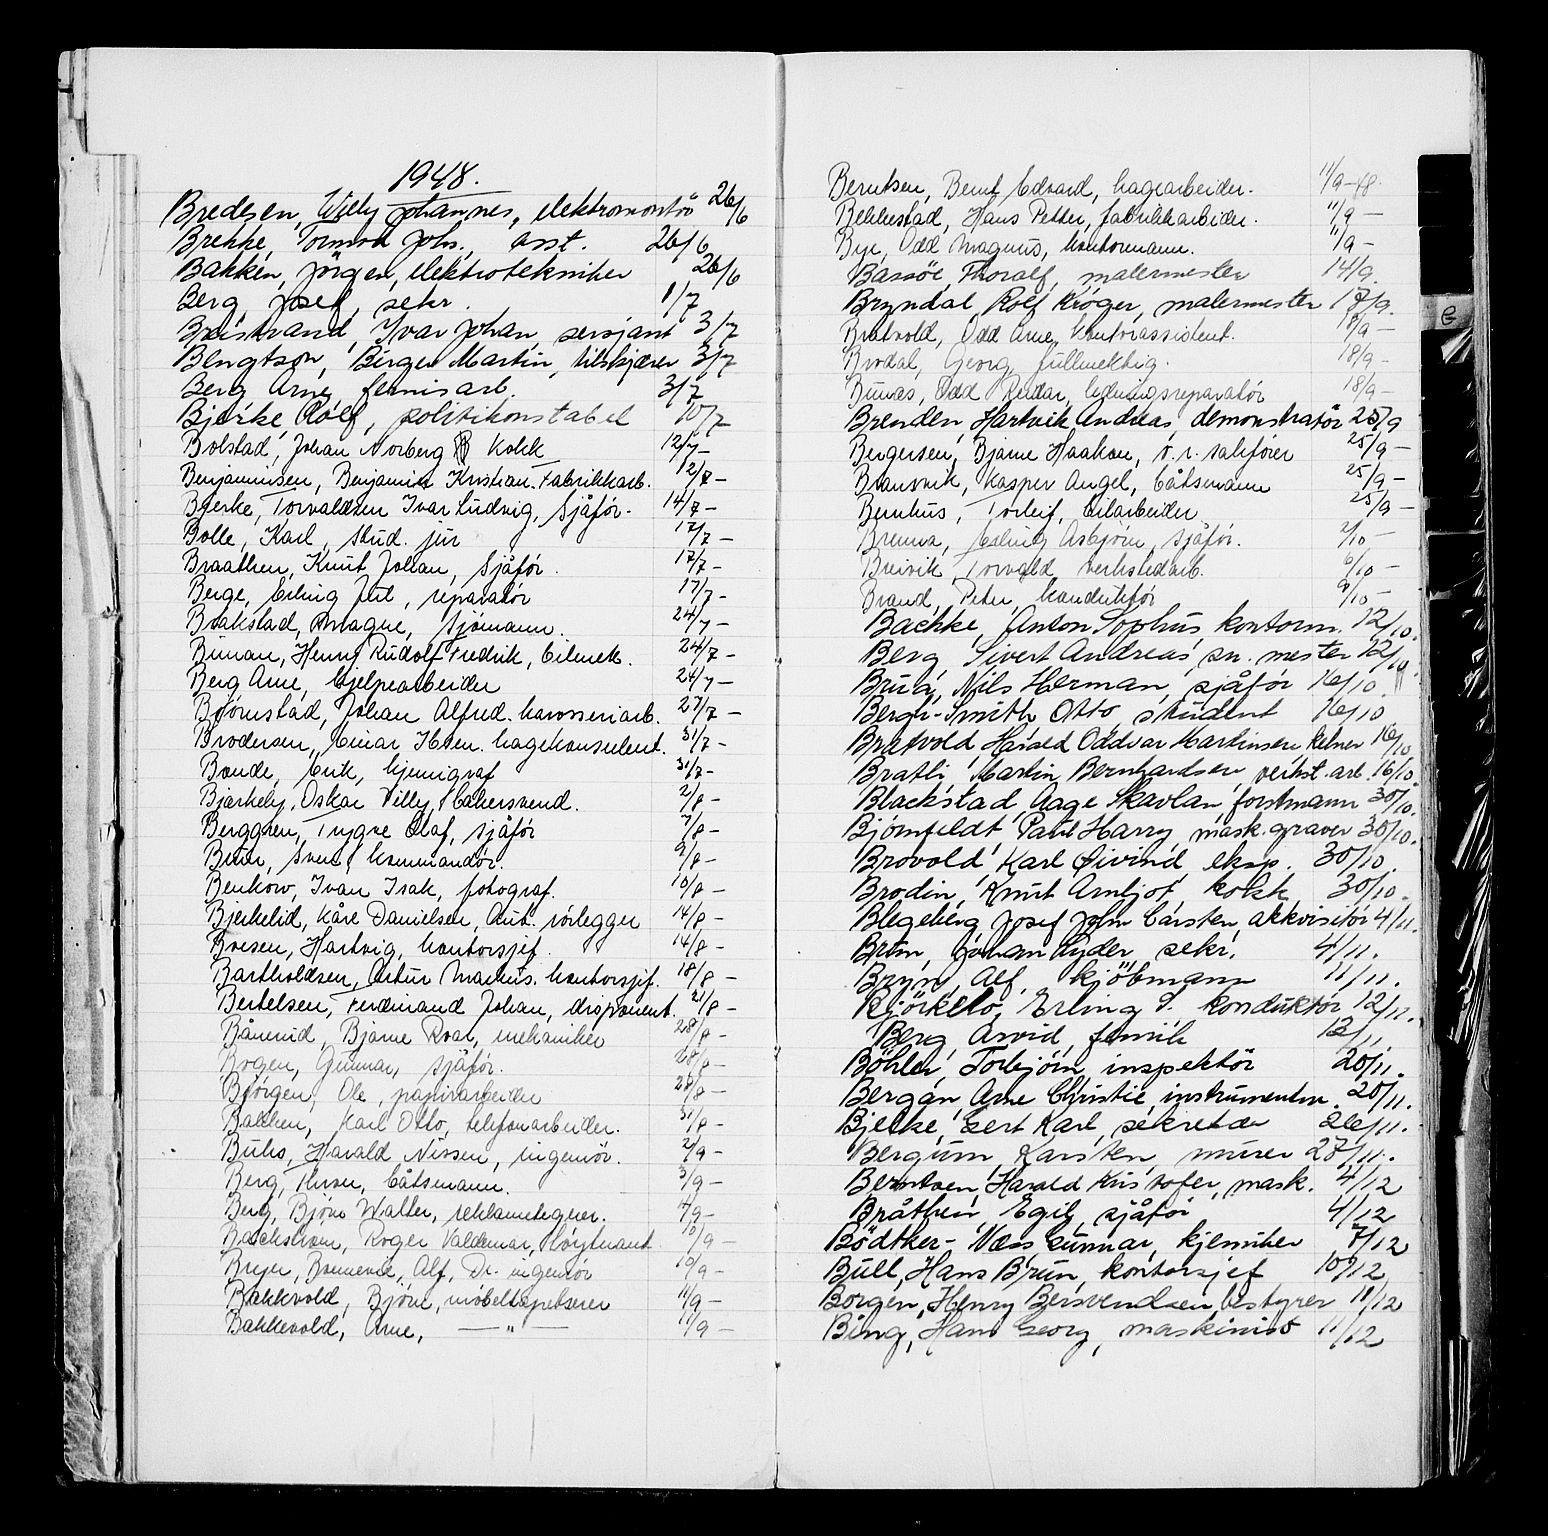 1948.
Bredsen, Willy Johannes, elektromontör 26/6
Brekke, Tormod Johs., asst. 26/6
Bakken, Jörgen, elektrotekniker 26/6
Berg, Josef, sekr. 1/7
Breistrand, Ivar Johan, sersjant 3/7
Bengtson, Birger Martin, tilskjærer 3/7
Berg Arne, fernisarb. 3/7
Bjerke Rolf, politikonstabel 10/7
Bolstad, Johan Norberg Kokk 12/7 –
Benjaminsen, Benjamin Kristian. Fabrikkarb. 12/7 –
Bjerke, Torvaldsen Ivar Ludvig, Sjåför. 14/7 –
Bolle, Karl, stud. jur 17/7 –
Braathen, Knut Johan, Sjåför. 17/7 –
Berge, Erling Juel, reparatör 17/7 –
Brakstad, Magne, Sjömann. 24/7 –
Buman, Henry Rudolf Fredrik, bilmek. 24/7 –
Berg Arne, hjelpearbeider 24/7 –
Björnstad, Johan Alfred. karosseriarb. 27/7 –
Brodersen, Einar Ibsen. hagekonsulent. 31/7 –
Bonde, Erik, kjemigraf 31/7 –
Bjerkely, Oskar Villy, bakersvend. 2/8 –
Berggren, Trygve Olaf, sjåför 7/8 –
Bruer, Sven, kommandör. 9/8 –
Benkow, Ivan Isak, fotograf. 10/8 –
Bjerkelid, Kåre Danielsen, Aut. rörlegger 14/8 –
Boesen, Hartvig, kontorsjef. 14/8 –
Bartholdsen, Artur Markus. kontorsjef. 18/8 –
Bertelsen, Ferdinand Johan, disponent. 21/8 –
Bånerud, Bjarne Roar, mekaniker 28/8 –
Bogen, Gunnar, sjåför. 28/8 –
Börgen, Ole, papirarbeider 28/8 –
Bakken, Karl Otto, telefonarbeider. 31/8 –
Buhs, Harald Nissen, ingeniör. 2/9 –
Berg, Iversen, båtsmann. 3/9 –
Berg, Björn Walter, reklametegner. 7/9 –
Roger Valdemar, löytnant 10/9 –
Breyer, Bonnevie, Alf, Dr. ingeniör 10/9 –
Bakkvold, Björn, möbeltapetserer 11/9 –
Bakkevold, Arne, — " — 11/9 –
Berntsen, Bernt Edvard, hagearbeider. 11/9 – 48.
Bekkestad, Hans Petter, fabrikkarbeider. 11/9 –
Bye, Odd Magnus, kontormann. 11/9 –
Bassöe, Thoralf, malermester 14/9.
Bryndal Rolf Kröger, malermester 17/9.
Bratvold, Odd Arne, kontorassistent. 18/9 –
Brodal, Georg, fullmektig. 18/9 –
Bunes, Odd Reidar, ledningsreparatör 18/9 –
Brenden, Hartvik Andreas, demonstratör 25/9
Bergersen, Bjarne Haakon, o.r. sakförer 25/9 –
Bransvik, Kasper Angel, båtsmann 25/9 –
Bernhus, Torleif, bilarbeider 25/9 –
Brenna, Erling Asbjörn, sjåför. 2/10 –
Breivik, Torvald verkstedarb. 6/10 –
Brand, Peter, konduktör 9/10 –
Bachke, Anton Sophus, kontorm. 12/10.
Berg, Sivert Andreas, sn. mester 12/10.
Brua, Nils Herman, sjåför 16/10.
Bergh-Smith Otto, student 16/10
Bratvold, Harald Oddvar Martinsen, kelner 16/10
Bratli, Martin Bernhardsen, verkst. arb. 16/10.
Blackstad, Aage Skavlan, forstmann 30/10.
Björnfeldt, Paul Harry, mask. graver 30/10.
Brovold, Karl Öivind, eksp. 30/10.
Brodin, Knut Arnljot, kokk 30/10.
Blegeberg, Josef John Carsten, akkvisitör 4/11.
Brun, Johan Lyder, sekr. 4/11.
Bryn, Alf, kjöbmann 11/11.
Bjürkelo, Erling S. konduktör 12/11.
Berg, Arvid, fernik 13/11.
Böhler, Torbjörn, inspektör 20/11.
Bergan, Arne Christie, instrumentm. 20/11.
Bjelke, Gert Karl, sekretær 26/11.
Bergum, Karsten, murer 27/11.
Berntsen, Harald Kristofer, mask. 4/12
Bråthen, Egil, sjåför 4/12
Bödtker-Næss Gunnar, kjemiker 7/12
Bull, Hans Brun, kontorsjef 10/12
Borgen, Henry Bersvendsen, bestyrer 11/12
Bing, Hans Georg, maskinist 11/12